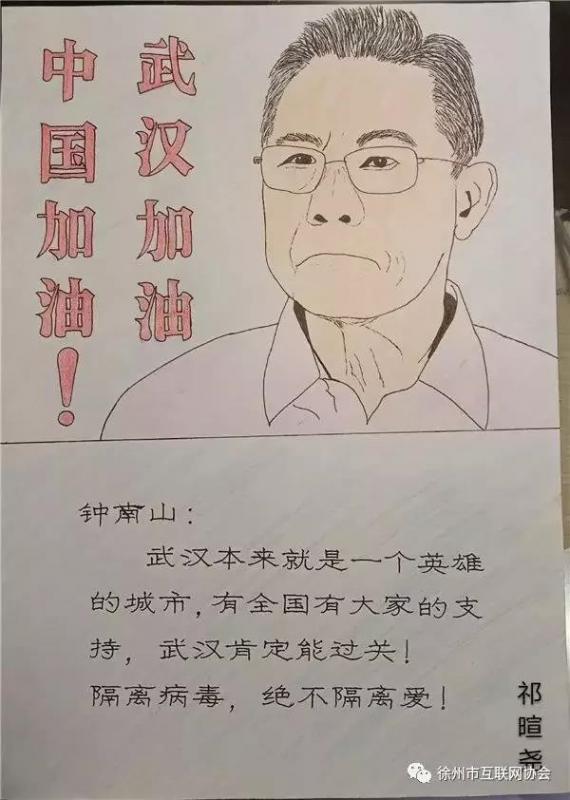 武汉加油
中国加油！
钟南山：
武汉本来就是一个英雄
的城市,有全国有大家的支
持，武汉肯定能过关！
隔离病毒，绝不隔离爱！
祁暄尧
徐州市互联网协会